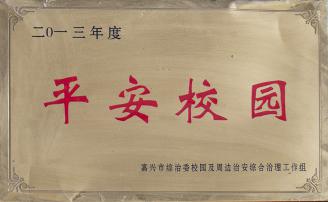 二〇一三年度
平安校园
嘉兴市综治委校园及周边治安综合治理工作组